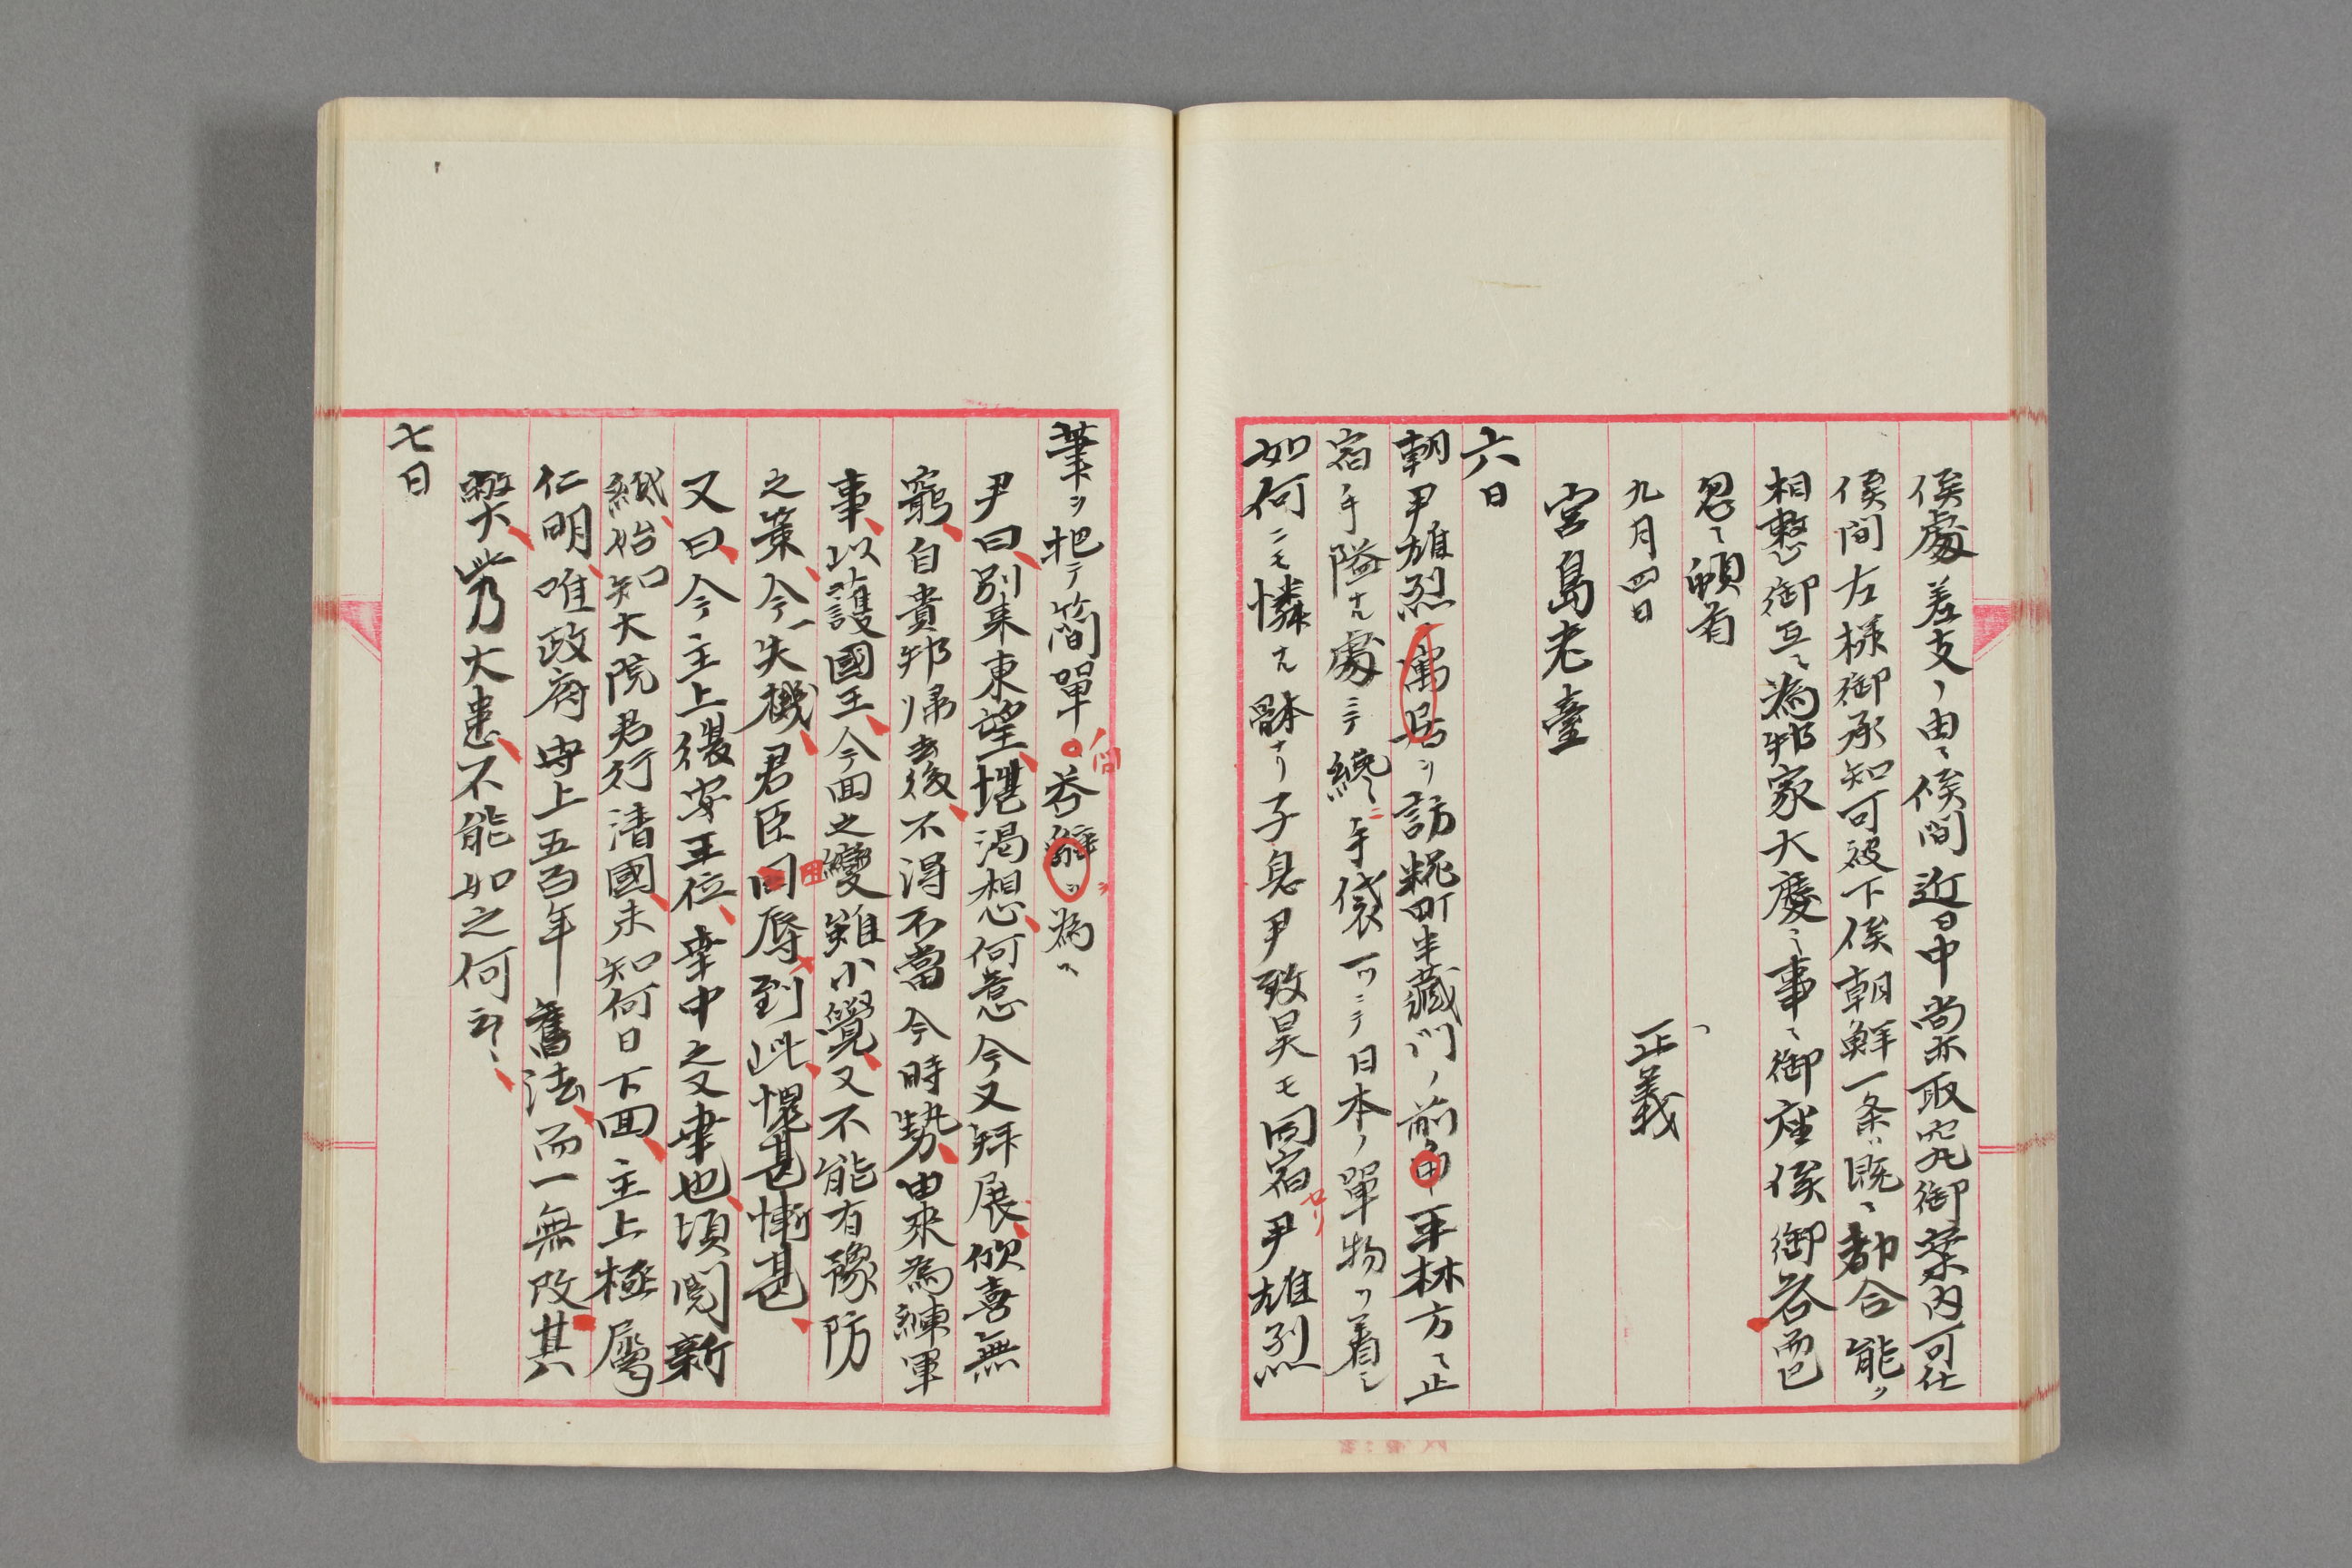 候處差支ノ由ニ候間近日中尚亦取究御案内可仕
候間左様御承知可被下候朝鮮一条ハ既ニ都合能ク
相整御互ニ為邦家大慶ニ事ニ御座候御答而已
忽々頓首
九月四日 正義
宮島老臺
六日
朝尹雄烈寓居ヲ訪糀町半藏門ノ前角平林方ニ止
宿手隘ナル處ニテ纔ニ手袋一ツニテ日本ノ單物ヲ着シ
如何ニモ憐ナル體ナリ子息尹致昊モ同宿セリ尹雄烈
筆ヲ把テ簡單問荅ヲ為ス
尹曰別来東望堪渇想何意今又拜展欣喜無
窮自貴邦帰去後不得不當今時勢由来為練軍
事以護國王今面之變雖小覺又不能有豫防
之策今一失機君臣困辱到此愧甚慚甚
又曰今主上復安王位幸中之又幸也頃閲新
紙始知大院君行清國未知何日下回主上極
仁明唯政府守上五百年舊法而一無改其
弊此乃大患不能如之何云々
七日